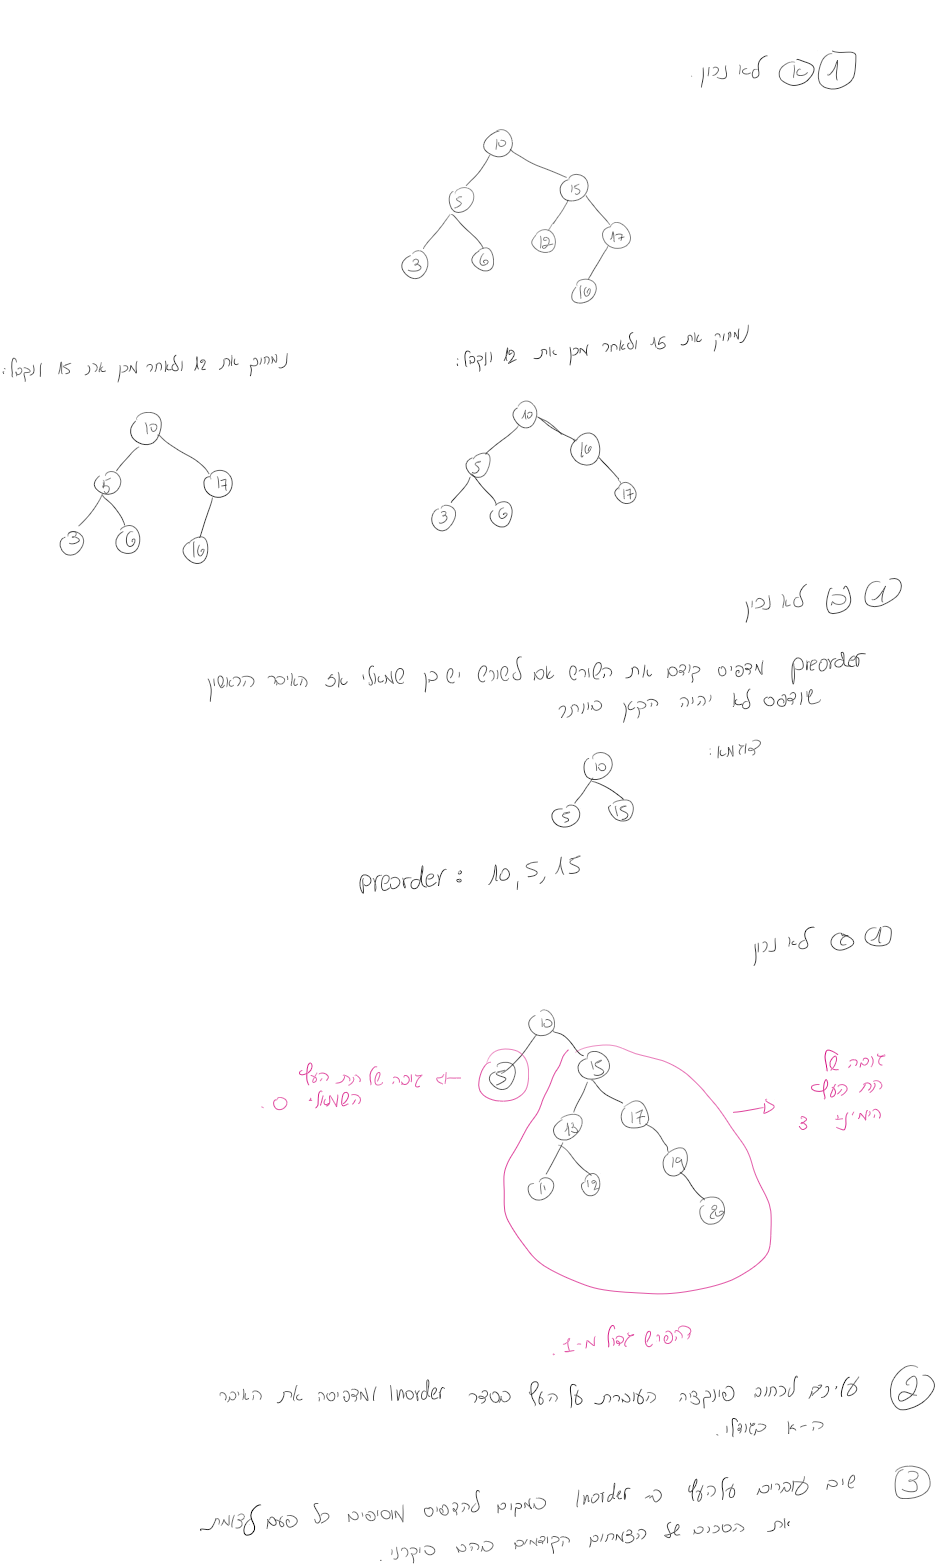 1 א לא נכון.
10
5 15
3 6 12 17
16
נמחוק את 15 ולאחר מכן את 12 ונקבל:
נמחוק את 12 ולאחר מכן את 15 ונקבל:
10
5 16
3 6 17
10
5 17
3 6 16
1 ב לא נכון
preorder מדפיס קודם את השורש אם לשורש יש בן שמאלי אז האיבר הראשון
שודפס לא יהיה הקטן ביותר
דוגמא:
10
5 15
preorder: 10, 5, 15
1 ג לא נכון
10
5 15
13 17
11 12 19
20
גובה של תת העץ
השמאלי 0.
גובה של
תת העץ
הימיני 3
ההפרש גדול מ-1.
2 עליכם לכתוב פונקציה העוברת על העץ בסדר Inorder ומדפיסה את האיבר
ה-k בגודלו.
3 שוב עוברים על העץ ב Inorder במקום להדפיס מוסיפים כל פעם לצומת
את הסכום של הצמתים הקודמים בהם ביקרנו.